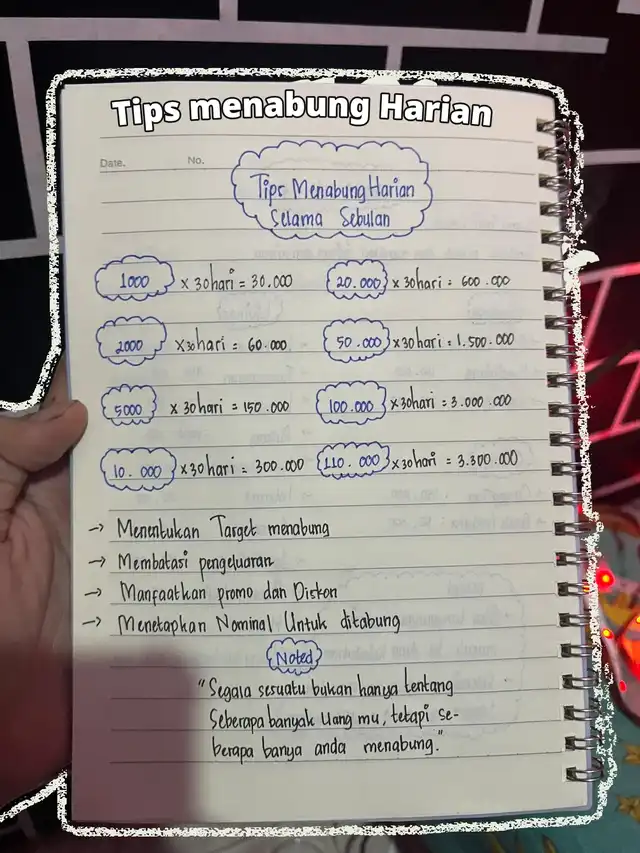 Tips menabung Harian
Date. No.
Tips Menabung Harian
Selama Sebulan
1000 x 30 hari = 30.000
20.000 x 30 hari = 600.000
2000 x 30 hari = 60.000
50.000 x 30 hari = 1.500.000
5000 x 30 hari = 150.000
100.000 x 30 hari = 3.000.000
10.000 x 30 hari = 300.000
110.000 x 30 hari = 3.300.000
→ Menentukan Target menabung
→ Membatasi pengeluaran
→ Manfaatkan promo dan Diskon
→ Menetapkan Nominal Untuk ditabung
Noted
"Segala sesuatu bukan hanya tentang
Seberapa banyak Uang mu, tetapi se-
berapa banya anda menabung."